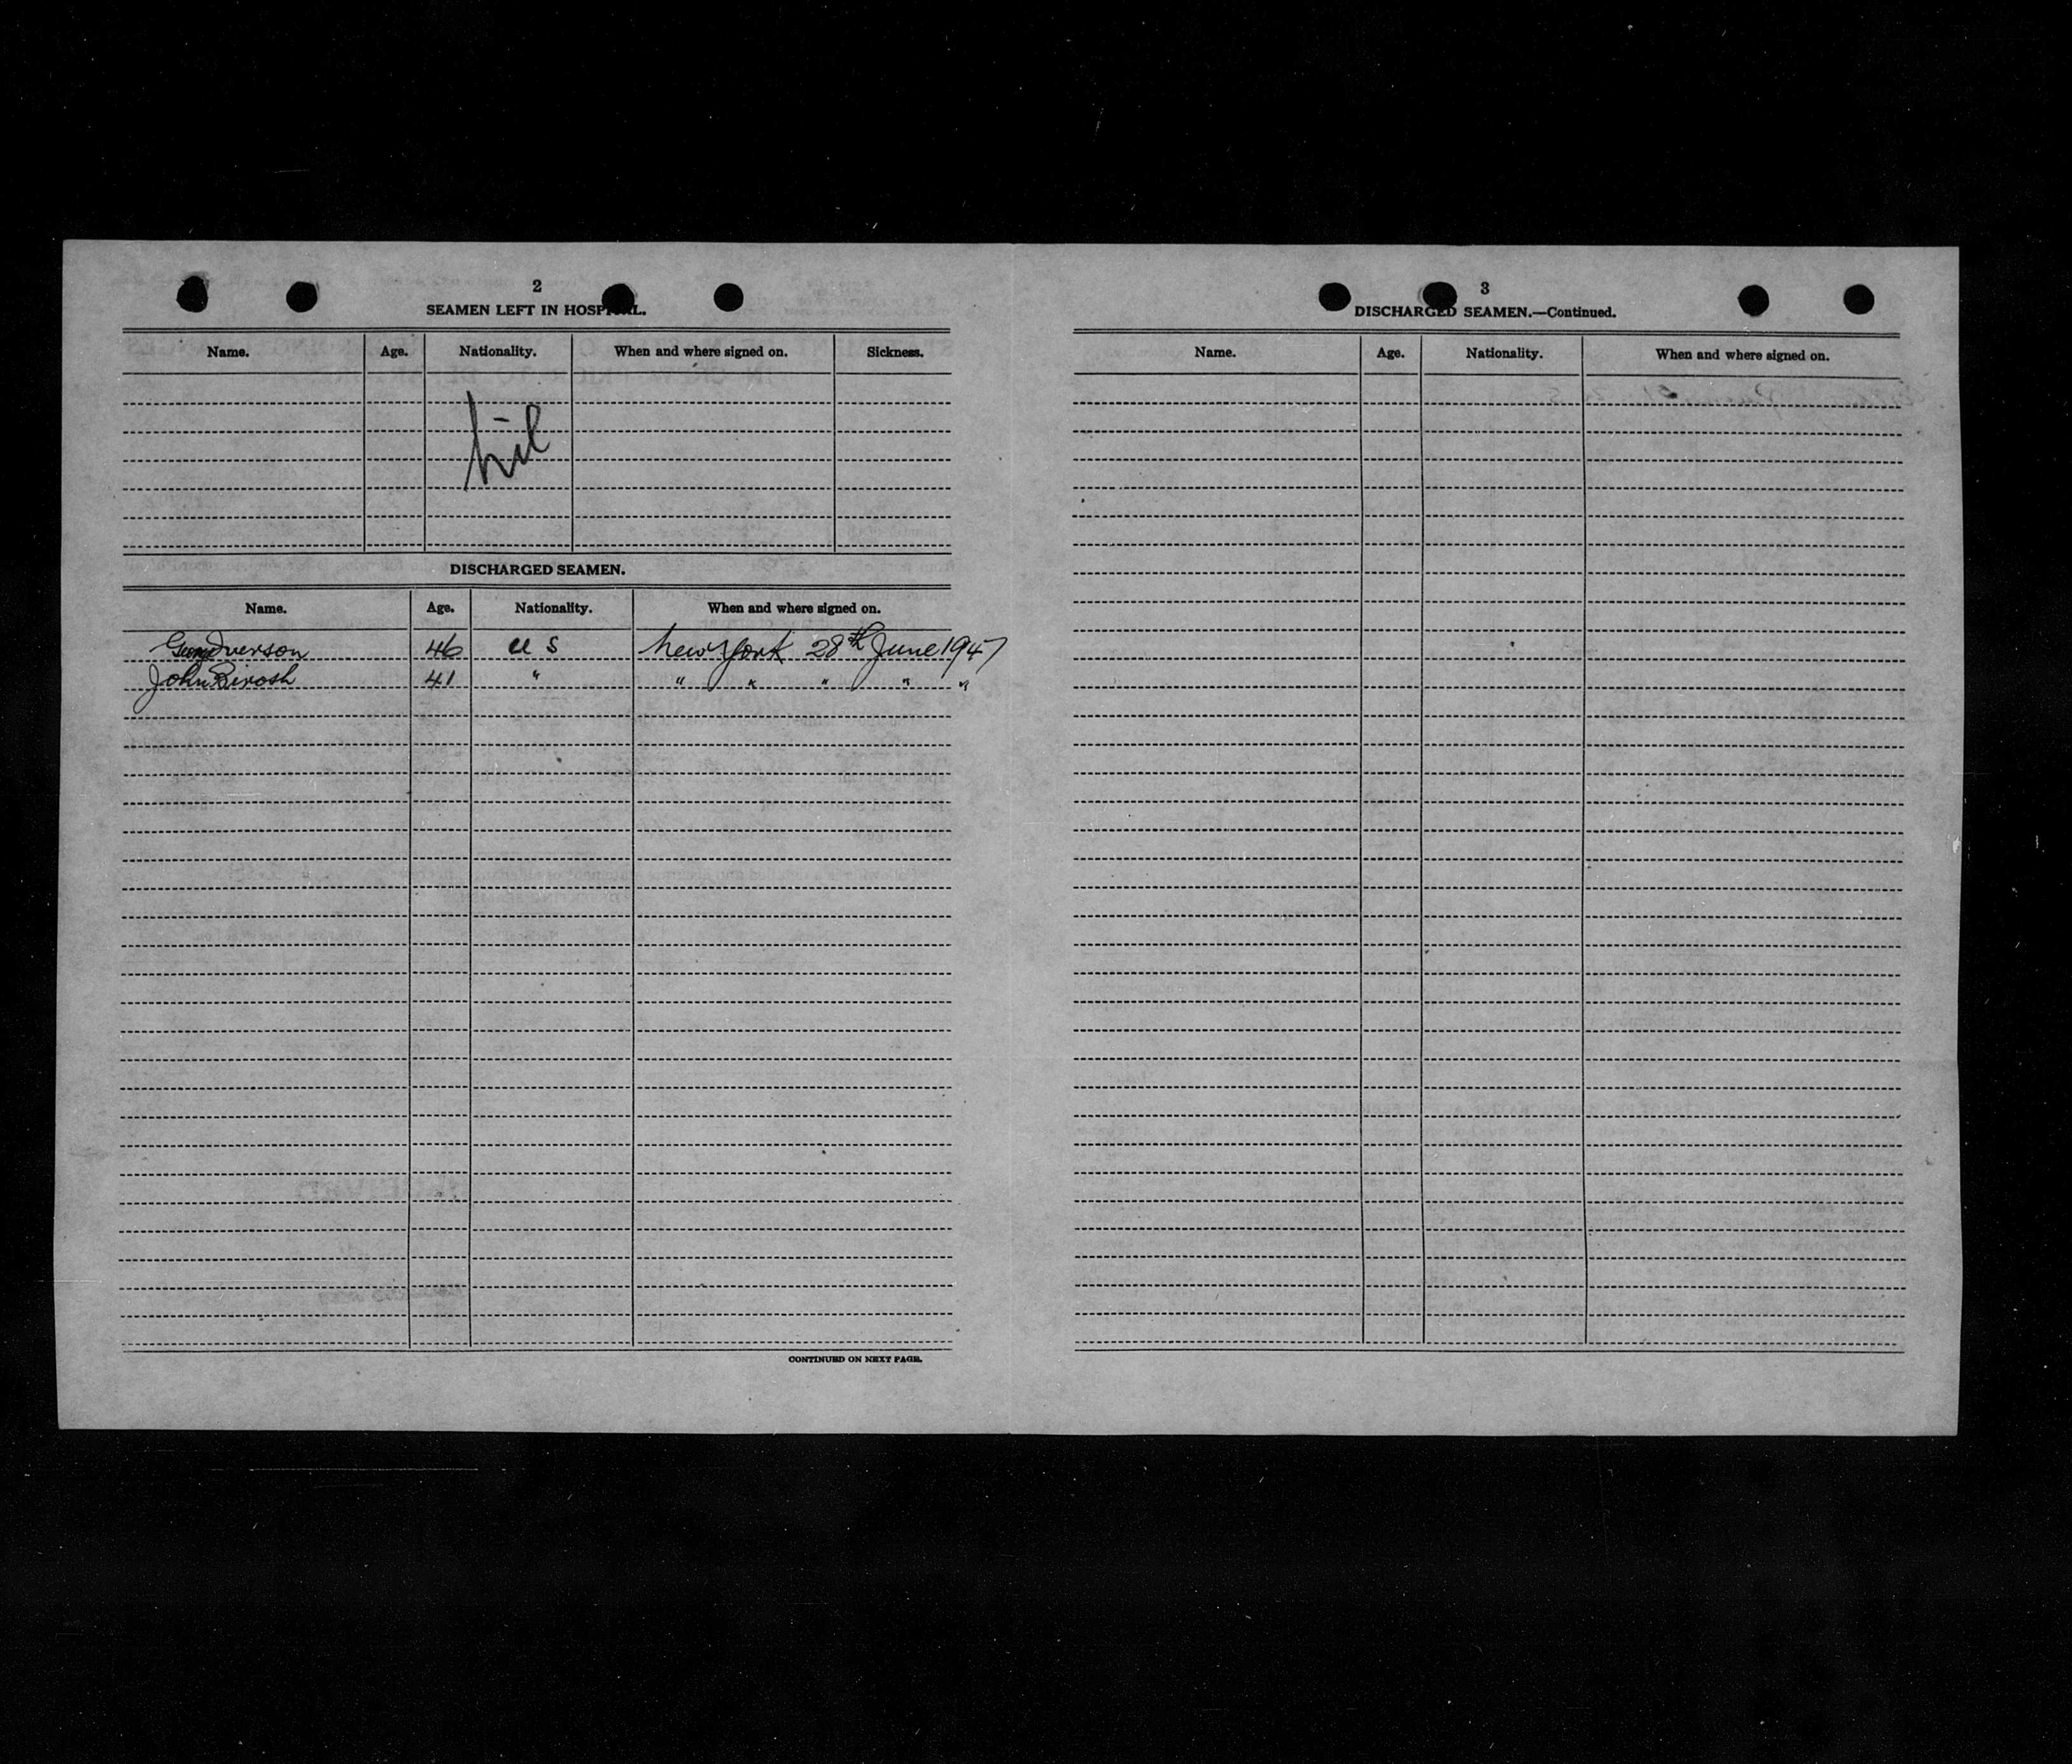 2
SEAMEN LEFT IN HOSPITAL.
Name. Age. Nationality. When and where signed on. Sickness.
Nil
DISCHARGED SEAMEN.
Name. Age. Nationality. When and where signed on.
Iverson 46 U S New York 28th June 1947
John 41 " " " " " "
CONTINUED ON NEXT PAGE.
3
DISCHARGED SEAMEN.—Continued.
Name. Age. Nationality. When and where signed on.